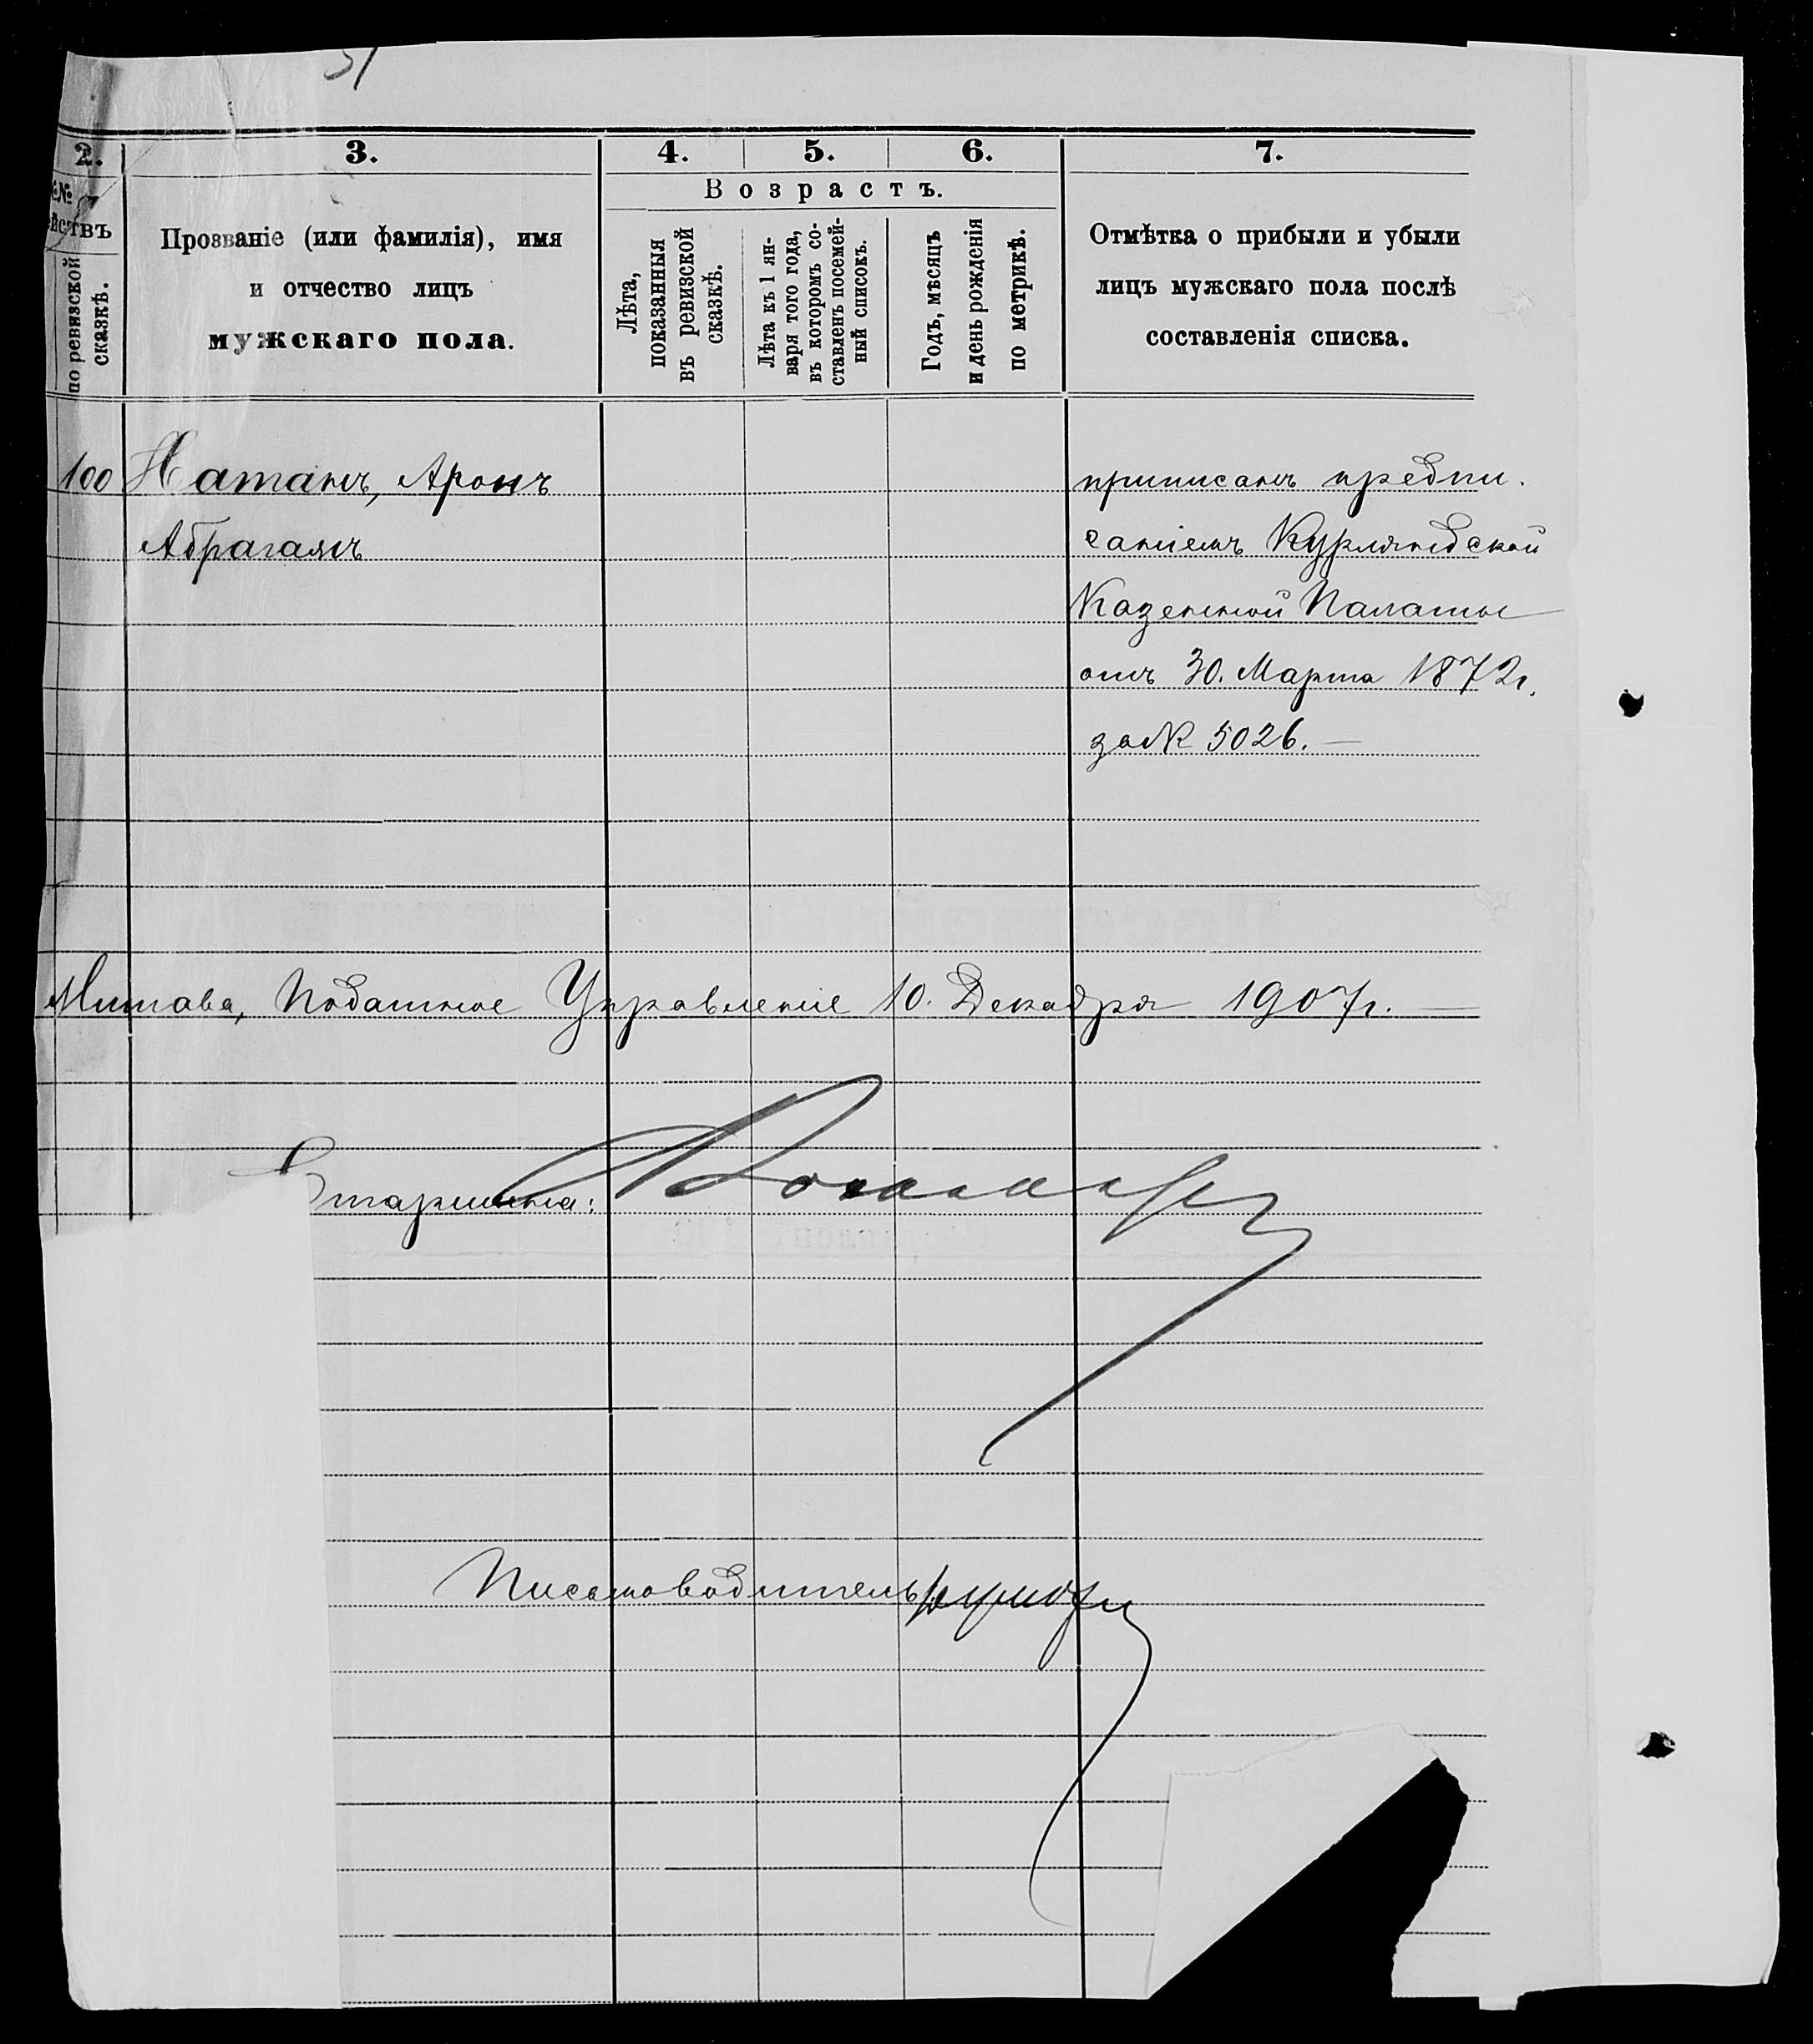 51
2. 3. 4. 5. 6. 7.
№
йствъ
по ревизской
сказкѣ.
Прозваніе (или фамилія), имя
и отчество лицъ
мужскаго пола.
Возрастъ.
Лѣта,
показанныя
въ ревизской
сказкѣ.
Лѣта къ 1 ян-
варя того года,
въ которомъ со-
ставленъ посемей-
ный списокъ.
Годъ, мѣсяцъ
и день рожденія
по метрикѣ.
Отмѣтка о прибыли и убыли
лицъ мужскаго пола послѣ
составленія списка.
100 Натанъ, Аронъ
Абрагамъ
приписанъ предпи.
саніемъ Курляндской
Казенной Палаты
отъ 30. Марта 1872г.
за № 5026. —
Митава, Податное Управленіе 10. Декабря 1907г. —
Старшина:
Письмоводитель